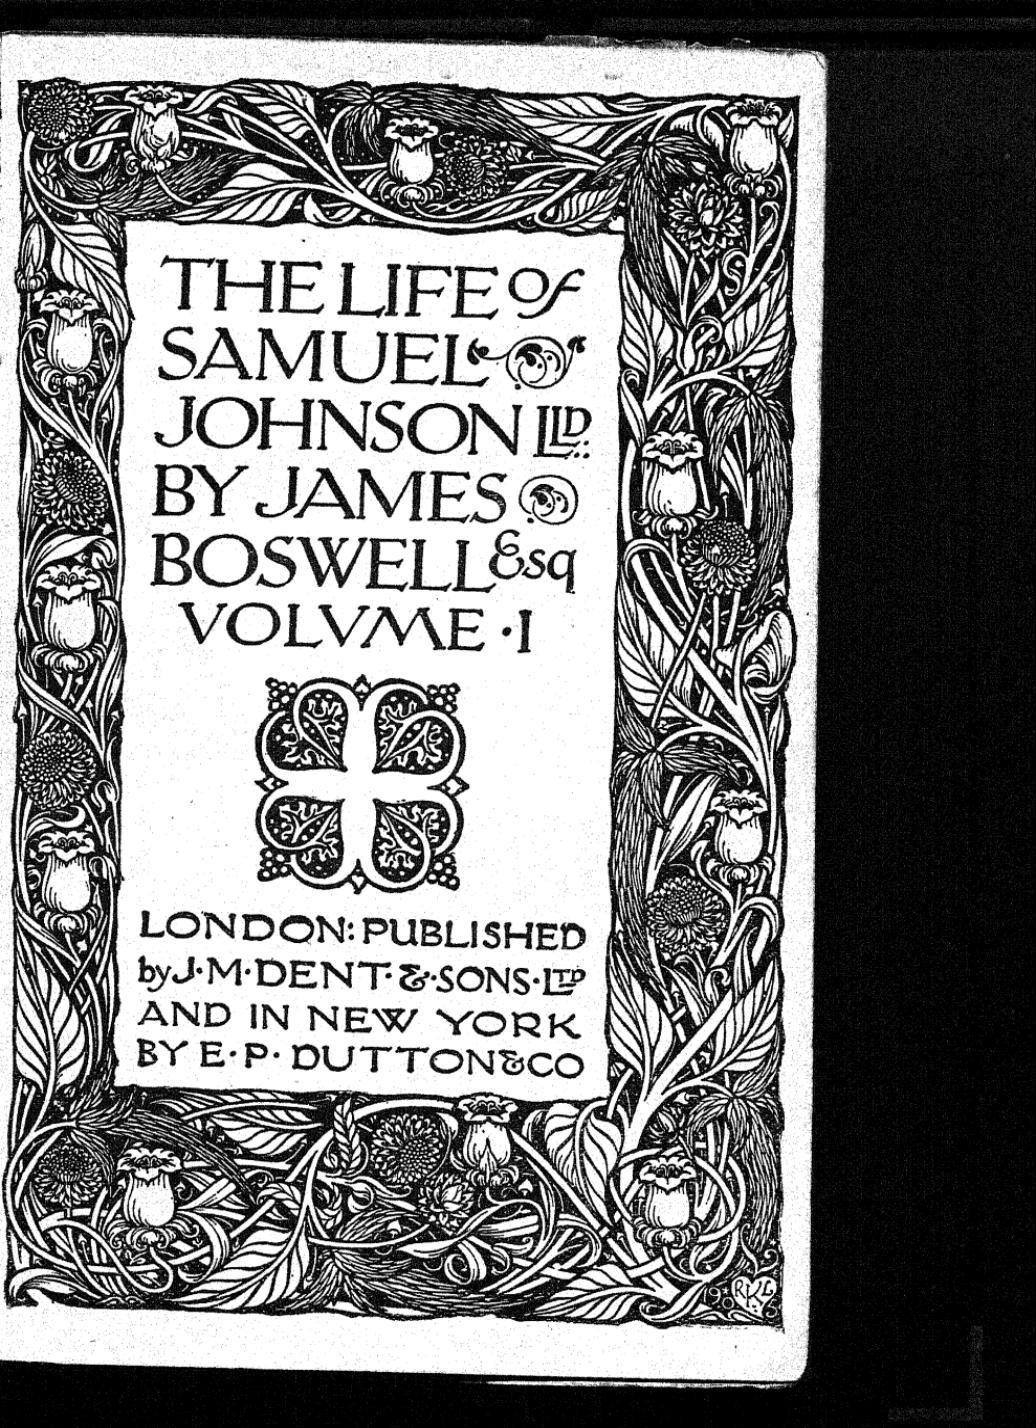 THE LIFE of
SAMUEL
JOHNSON LLD.:
BY JAMES
BOSWELL Esq
VOLVME · I
LONDON: PUBLISHED
by J·M·DENT·&·SONS·LTD
AND IN NEW YORK
BY E·P· DUTTON&CO
19 RKL
06